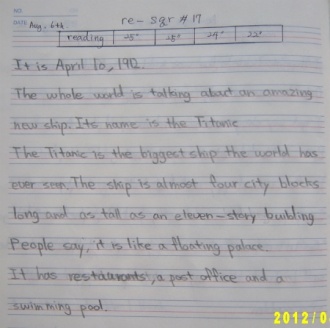 NO.
DATE Aug. 6th.
re- sgr #17
reading
It is April 10, 1912.
The whole world is talking about an amazing
new ship. Its name is the Titanic
The Titanic is the biggest ship the world has
ever seen. The ship is almost four city blocks
long and as tall as an eleven-story building
People say, it is like a floating palace.
It has restaurants, a post office and a
swimming pool.
2012/0